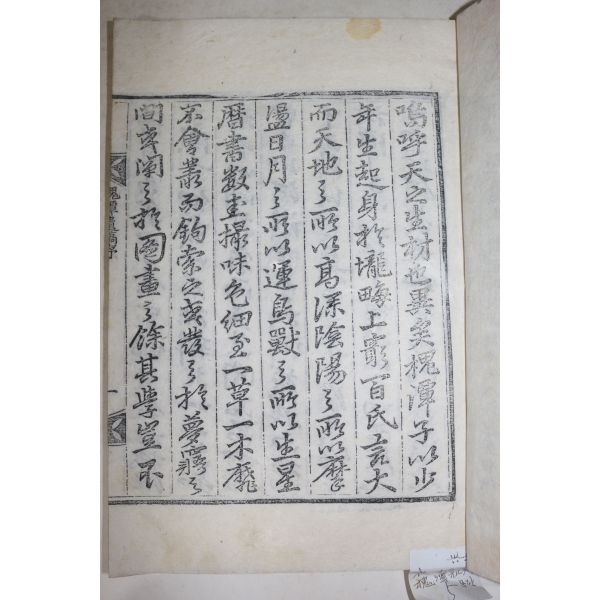 嗚呼天之生材也異矣槐潭子以少
年生起身於壠畝上窮百氏言大
而天地之所以高深陰陽之所以摩
盪日月之所以運鳥獸之所以生星
曆書數圭撮味色細至一草一木靡
不會叢而鉤索之或發之於夢寐之
間或闡之於圖畫之餘其學豈不
槐潭遺稿序
一
槐潭